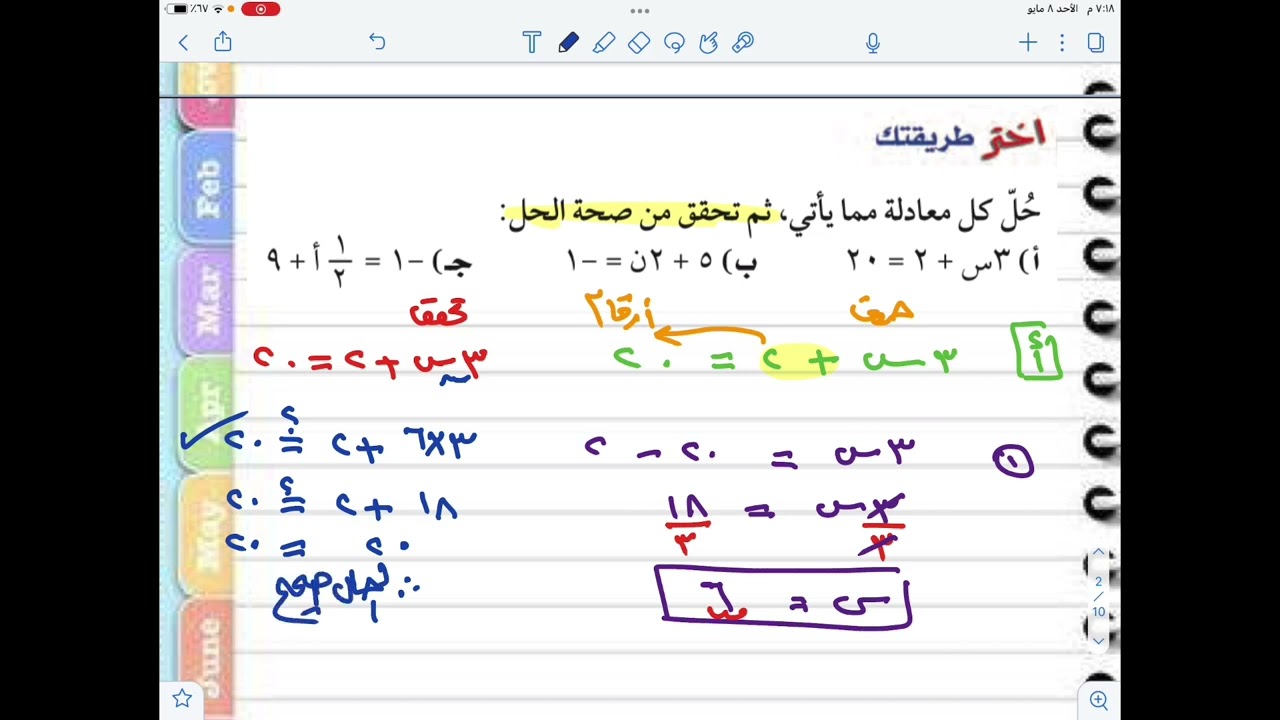 ٧:١٨ م الأحد ٨ مايو
٦٧٪
اختر طريقتك
حُلّ كل معادلة مما يأتي، ثم تحقق من صحة الحل:
أ) ٣س + ٢ = ٢٠ ب) ٥ + ٢ن = -١ جـ) -١ = ١/٢ أ + ٩
تحقق
أ ٣س + ٢ = ٢٠
٣س + ٢ = ٢٠
١ ٣س = ٢٠ - ٢
٣×٦ + ٢ =؟ ٢٠ ✓
٣س/٣ = ١٨/٣
١٨ + ٢ =؟ ٢٠
٢٠ = ٢٠
س = ٦
∴ الحل صحيح
Feb
Mar
Apr
May
June
2
/
10